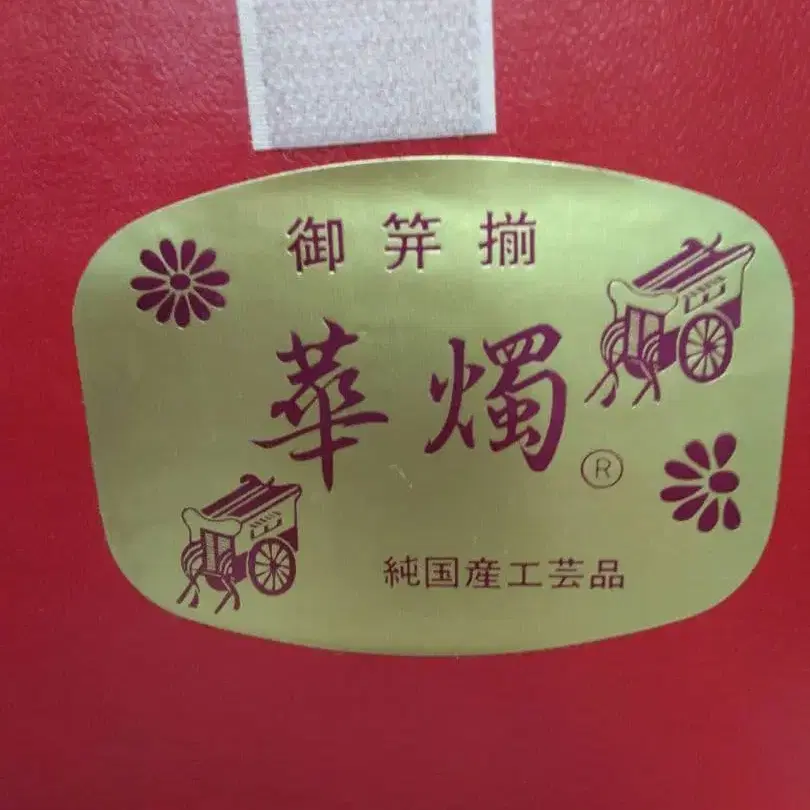 御笄揃
華燭®
純国産工芸品